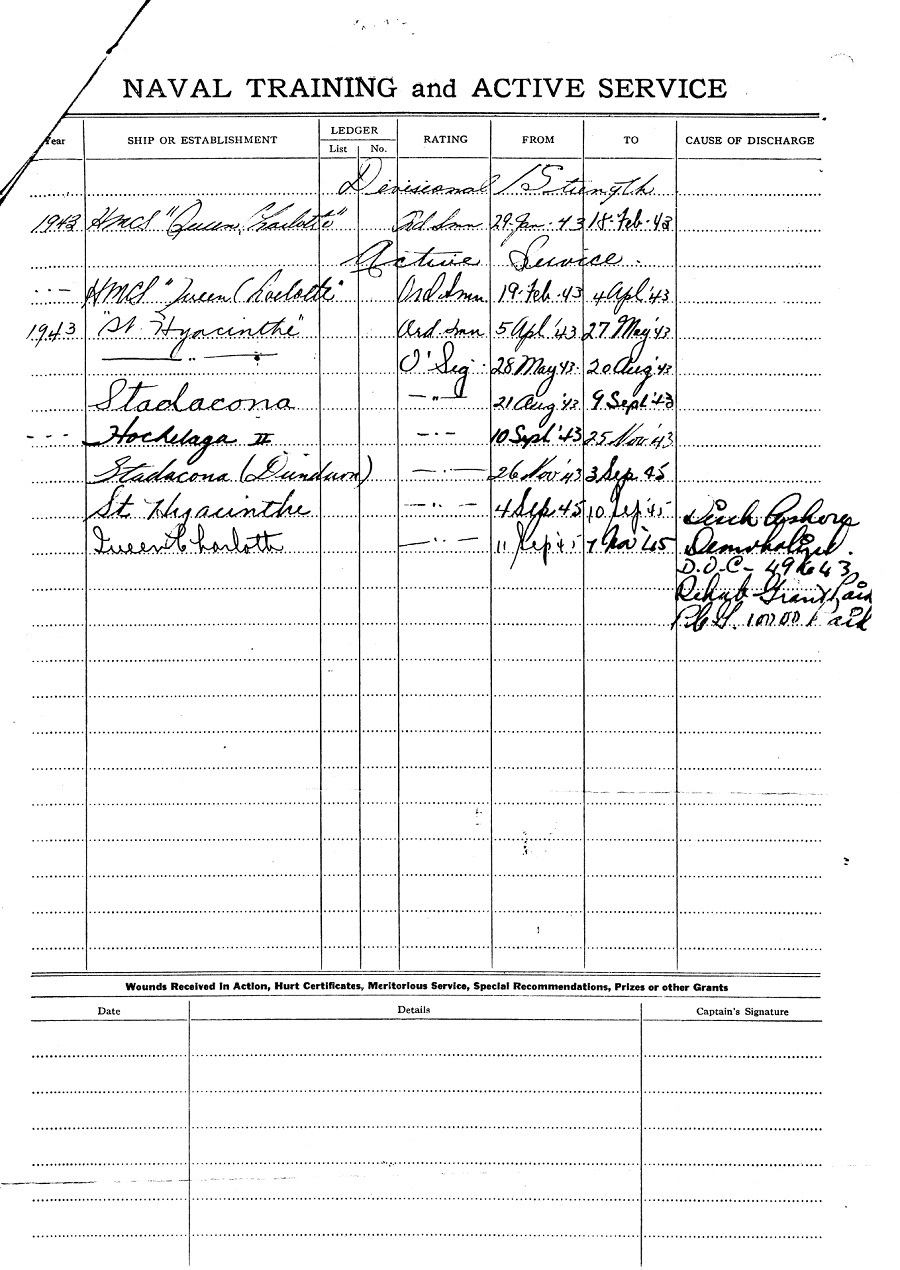 NAVAL TRAINING and ACTIVE SERVICE
Year SHIP OR ESTABLISHMENT LEDGER List No. RATING FROM TO CAUSE OF DISCHARGE
Divisional Strength
1943 HMCS "Queen Charlotte" Ord Smn 29 Jan. 43 18 Feb. 43
Active Service.
" HMCS "Queen Charlotte" Ord Smn 19 Feb. 43 4 Apl '43
1943 "St. Hyacinthe" Ord Smn 5 Apl '43 27 May '43
— " — O'Sig. 28 May 43. 20 Aug '43
Stadacona — " — 21 Aug '43 9 Sept '43
- - - Hochelaga II — " — 10 Sept '43 25 Nov '43
Stadacona (Dundurn) — " — 26 Nov '43 3 Sep. 45
St. Hyacinthe — " — 4 Sep. 45 10 Sep '45 Disch Ashore
Queen Charlotte — " — 11 Sep '45 7 Nov '45 Demobolized.
D.O.C-
Rehab Grant Paid
100.00 Paid
Wounds Received in Action, Hurt Certificates, Meritorious Service, Special Recommendations, Prizes or other Grants
Date Details Captain's Signature